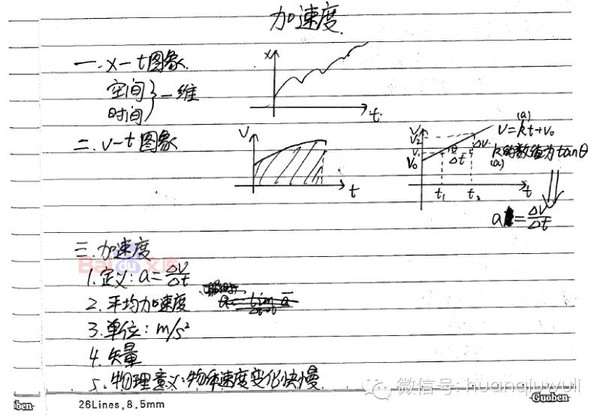 加速度
一. x-t图象
空间
时间
}一维
x
t
二. v-t图象
v
t
v
v₂
v₁
v₀
Δv
θ
Δt
t₁
t₂
t
v=kt+v₀
(a)
k的数值为tanθ
(a)
a=Δv/Δt
三. 加速度
1. 定义: a=Δv/Δt
2. 平均加速度
3. 单位: m/s²
4. 矢量
5. 物理意义: 物体速度变化快慢.
微信号: huangjuwuli
26Lines, 8.5mm
Guoben